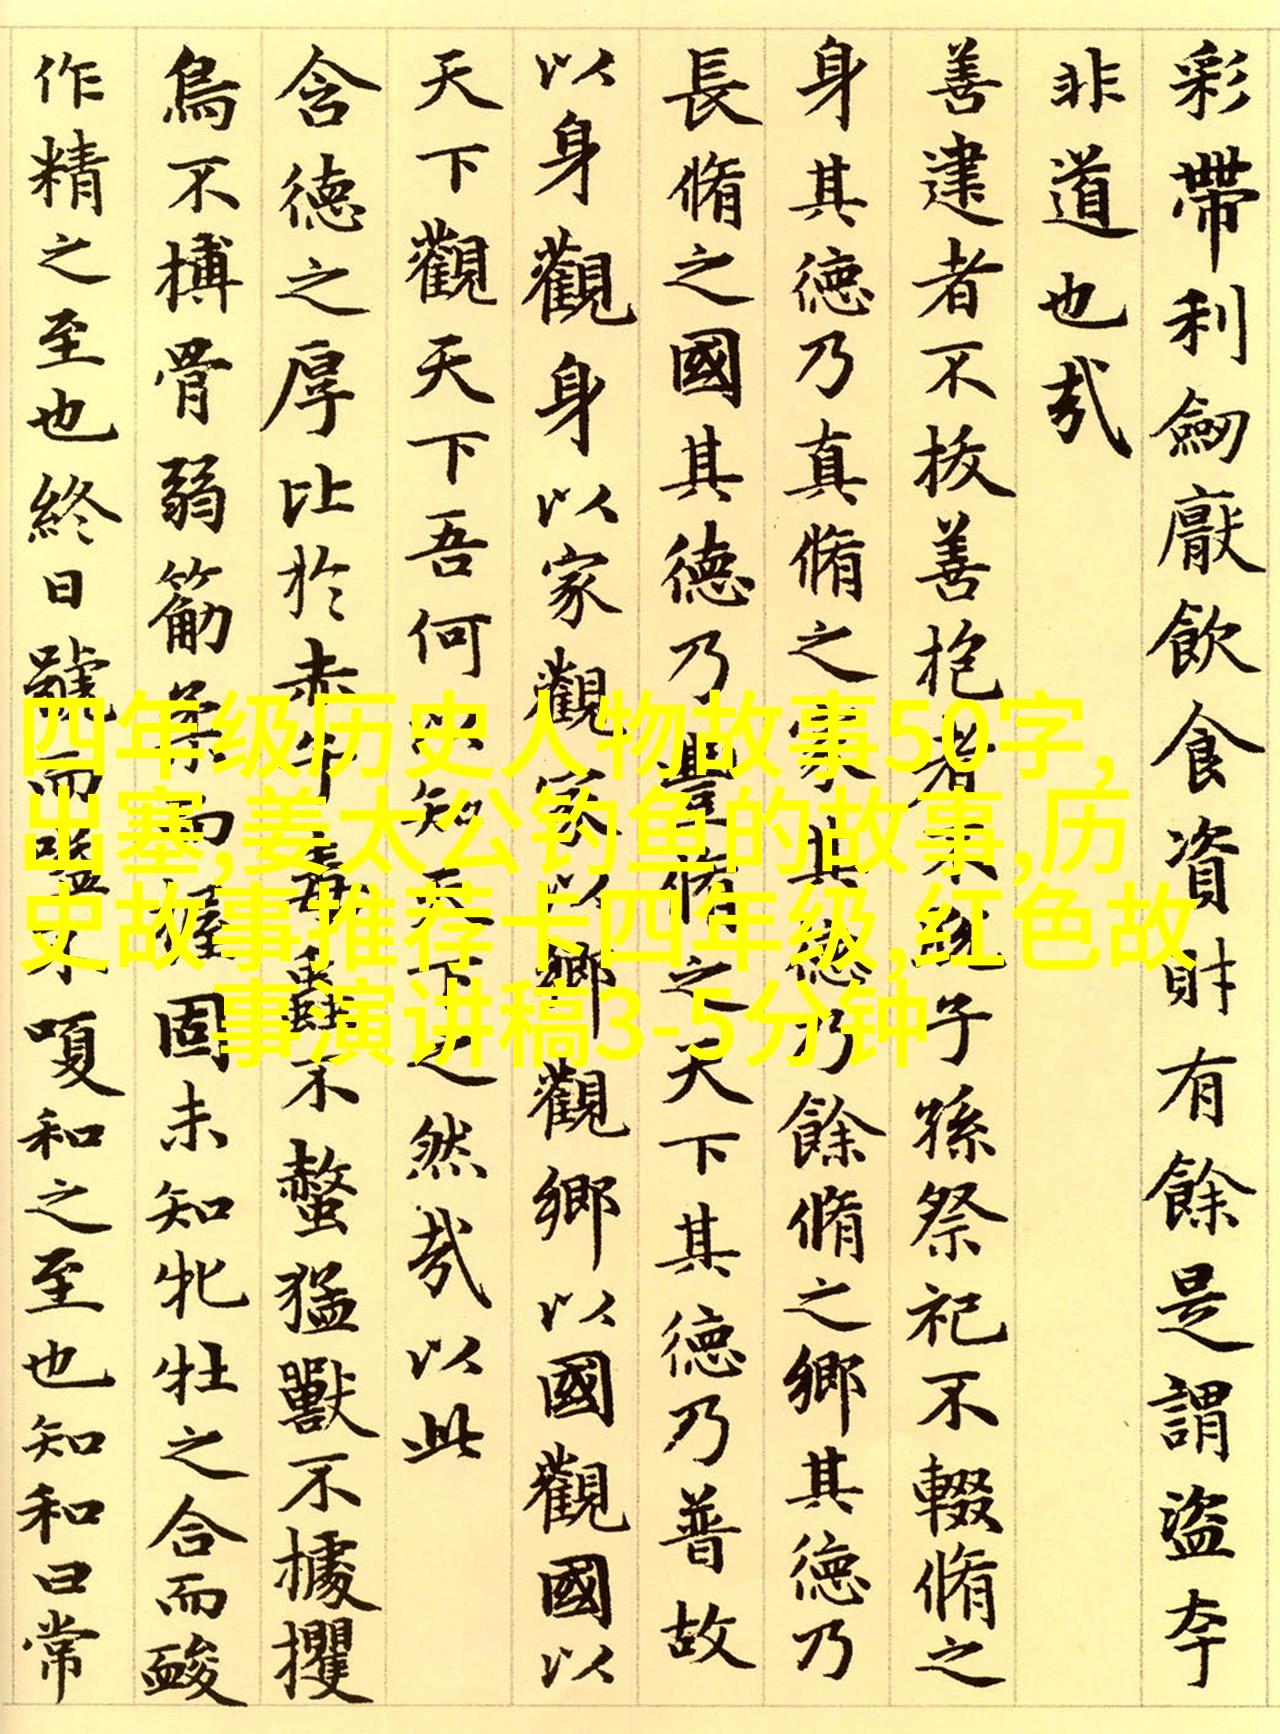 彩帶利劒厭飲食資財有餘是謂盜夸
非道也哉
善建者不拔善抱者不脫子孫祭祀不輟脩之
身其德乃真脩之家其德乃餘脩之鄉其德乃
長脩之國其德乃豐脩之天下其德乃普故
以身觀身以家觀家以鄉觀鄉以國觀國以
天下觀天下吾何以知天下之然哉以此
含德之厚比於赤子毒蟲不螫猛獸不據攫
鳥不搏骨弱筋柔而握固未知牝牡之合而酸
作精之至也終日號而嗌不嗄和之至也知和曰常
四年级历史人物故事50字,
出塞,姜太公钓鱼的故事,历
史故事推荐卡四年级,红色故
事演讲稿3-5分钟